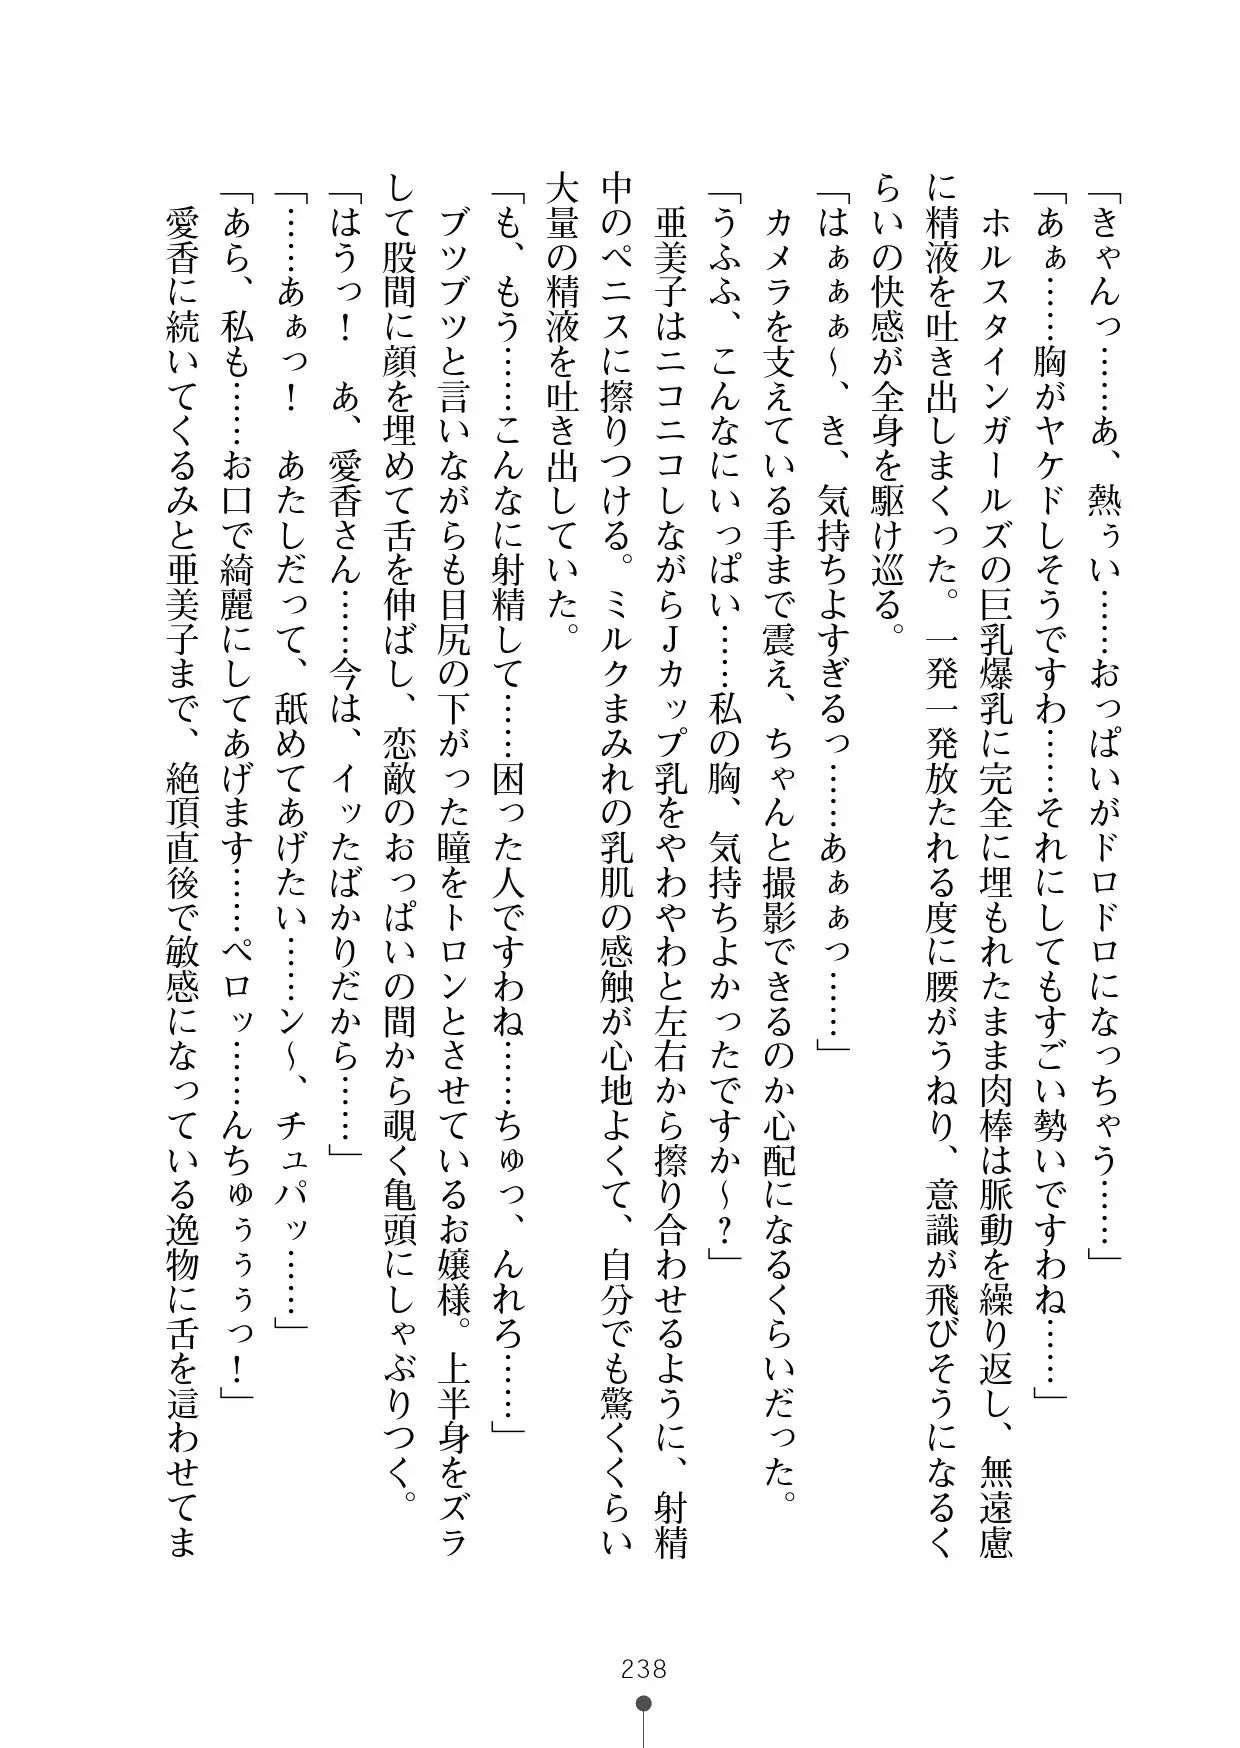 「きゃんっ……あ、熱ぅい……おっぱいがドロドロになっちゃう……」
「あぁ……胸がヤケドしそうですわ……それにしてもすごい勢いですわね……」
ホルスタインガールズの巨乳爆乳に完全に埋もれたまま肉棒は脈動を繰り返し、無遠慮
に精液を吐き出しまくった。一発一発放たれる度に腰がうねり、意識が飛びそうになるく
らいの快感が全身を駆け巡る。
「はぁぁぁ～、き、気持ちよすぎるっ……あぁぁっ……」
カメラを支えている手まで震え、ちゃんと撮影できるのか心配になるくらいだった。
「うふふ、こんなにいっぱい……私の胸、気持ちよかったですか～？」
亜美子はニコニコしながらＪカップ乳をやわやわと左右から擦り合わせるように、射精
中のペニスに擦りつける。ミルクまみれの乳肌の感触が心地よくて、自分でも驚くくらい
大量の精液を吐き出していた。
「も、もう……こんなに射精して……困った人ですわね……ちゅっ、んれろ……」
ブツブツと言いながらも目尻の下がった瞳をトロンとさせているお嬢様。上半身をズラ
して股間に顔を埋めて舌を伸ばし、恋敵のおっぱいの間から覗く亀頭にしゃぶりつく。
「はうっ！　あ、愛香さん……今は、イッたばかりだから……」
「……あぁっ！　あたしだって、舐めてあげたい……ン～、チュパッ……」
「あら、私も……お口で綺麗にしてあげます……ペロッ……んちゅぅぅぅっ！」
愛香に続いてくるみと亜美子まで、絶頂直後で敏感になっている逸物に舌を這わせてま
238